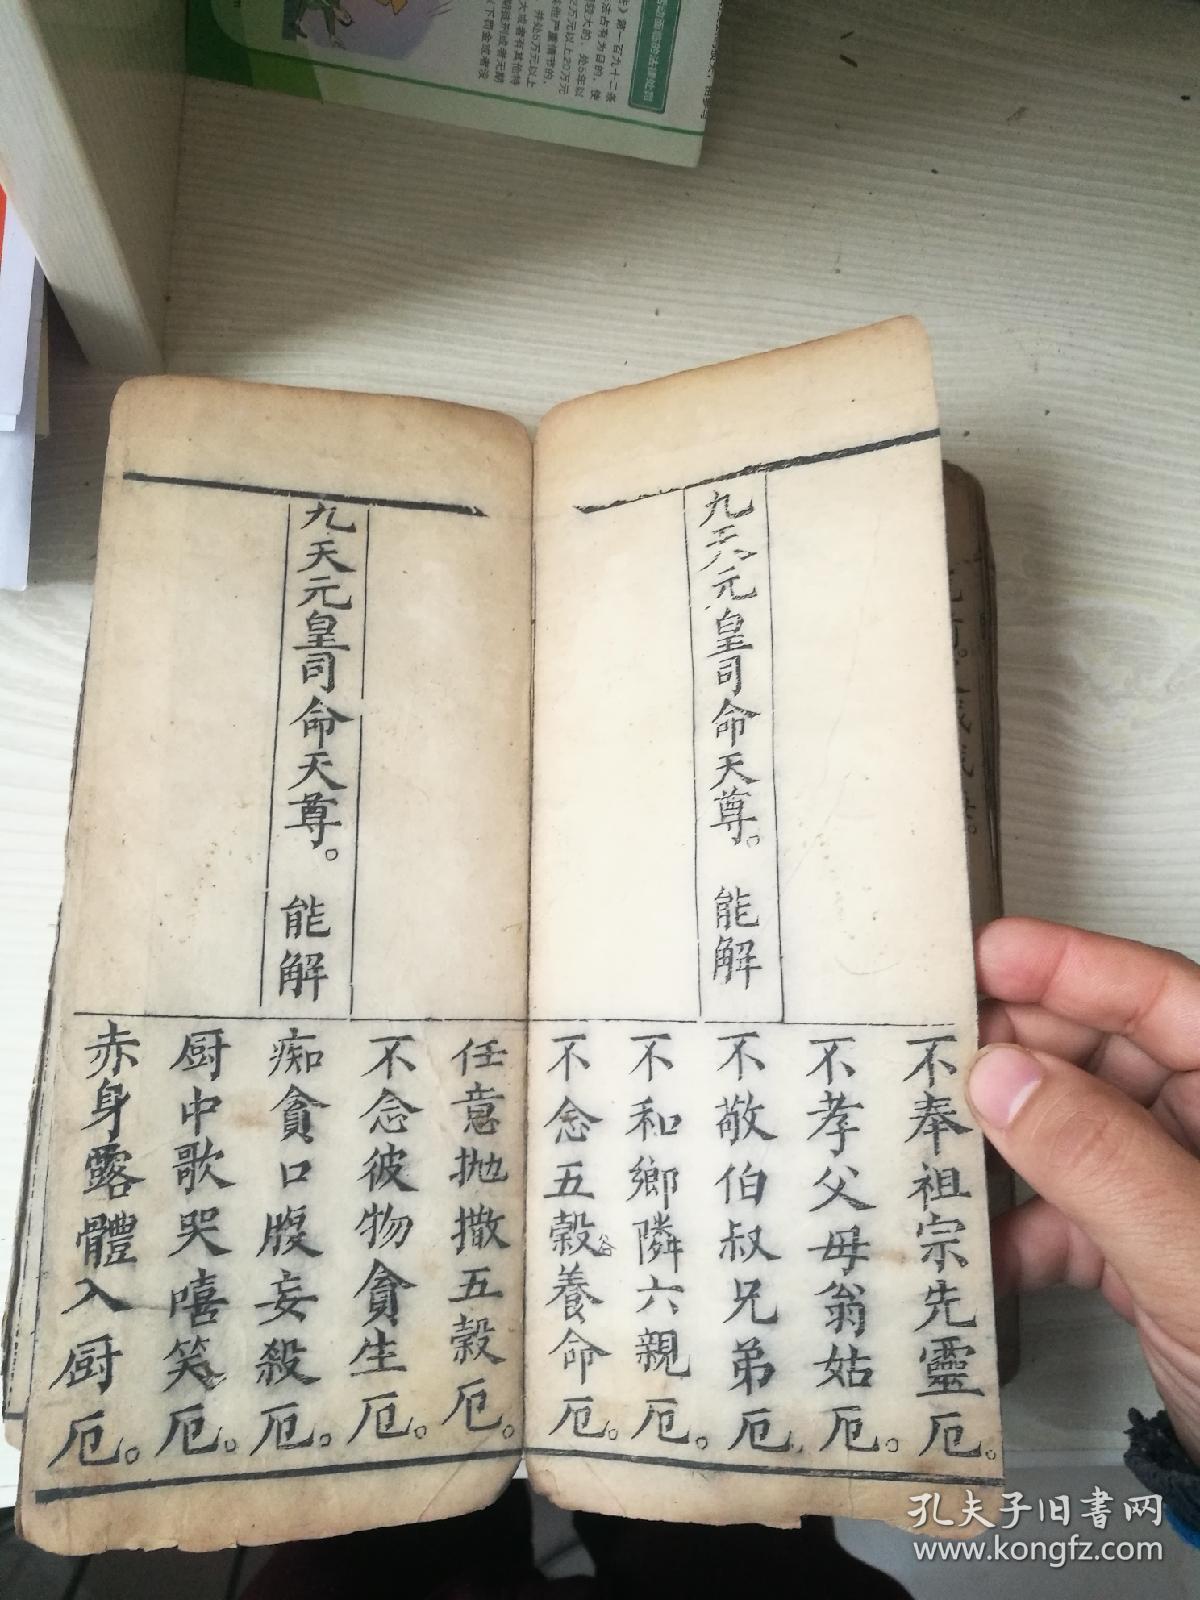 九天元皇司命天尊。能解
不奉祖宗先靈厄。
不孝父母翁姑厄。
不敬伯叔兄弟厄。
不和鄉隣六親厄。
不念五穀養命厄。
谷
九天元皇司命天尊。能解
任意抛撒五穀厄。
不念彼物貪生厄。
痴貪口腹妄殺厄。
厨中歌哭嘻笑厄。
赤身露體入厨厄。
孔夫子旧書网
www.kongfz.com